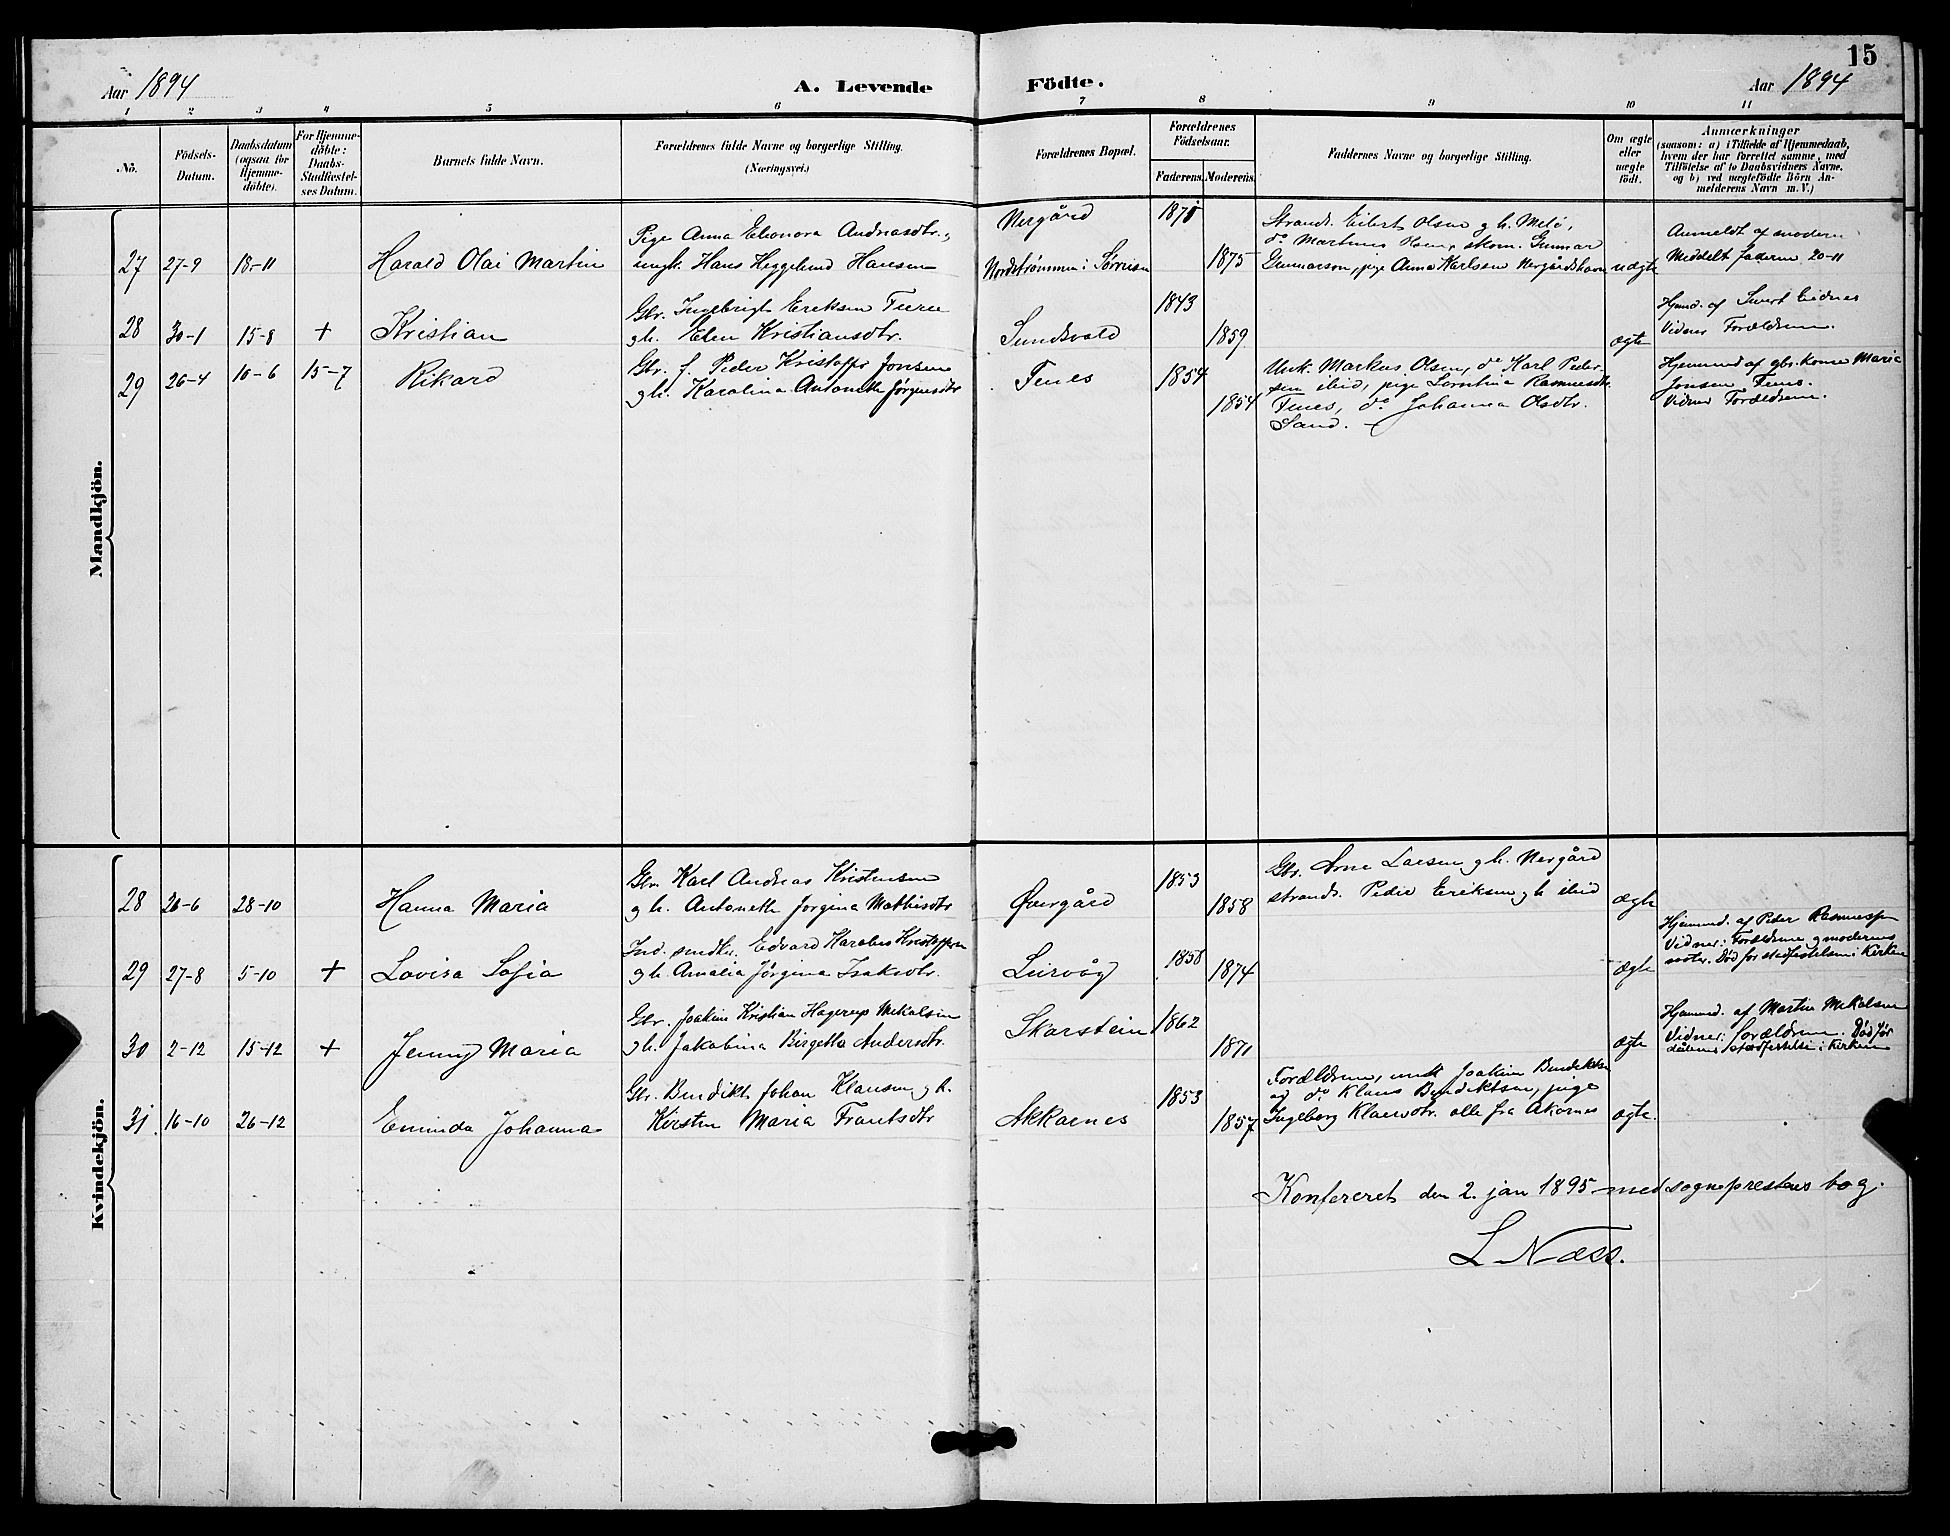 15
Aar 1894
A. Levende Födte.
Aar 1894
1 2 3 4 5 6 7 8 9 10 11
No.
Födsels-Datum.
Daabsdatum (ogsaa for Hjemme-döbte).
For Hjemme-döbte: Daabs-Stadfæstel-ses Datum.
Barnets fulde Navn.
Forældrenes fulde Navne og borgerlige Stilling.
(Næringsvei.)
Forældrenes Bopæl.
Forældrenes Födselsaar.
Faderens. Moderens.
Faddernes Navne og borgerlige Stilling.
Om ægte eller uægte födt.
Anmærkninger
(saasom: a) i Tilfælde af Hjemmedaab, hvem der har forrettet samme, med Tilföielse af to Daabsvidners Navne, og b) ved uægtefödte Börn An-melderens Navn m. V.)
Mandkjön.
27 27-9 18-11 Harald Olai Martin
Pige Anna Eleonora Andreasdtr.,
ungk. Hans Heggelund Hansen
Nergård
Nordstrømmen i Sørreisa
1871
1875
Strands. Eilert Olsen gh. Melö,
do Martinus Olsen, skom. Gunnar
Gunnarson, pige Anna Karlssen Nergårdshavn
uægte
Anmeldt af moderen
Meddelt faderen 20-11
28 30-1 15-8 + Kristian
Gbr. Ingebrigt Eriksen
gh. Elen Kristiansdtr.
Sundsvold
1843
1859
ægte
Hjemd. af Sivert Eidnes
Vidner Forældrene.
29 26-4 10-6 15-7 Rikard
Gbr. f. Peder Kristoffer Jonsen
gh. Karolina Antonette Jørgensdtr
Fenes
1854
1854
Unk. Markus Olsen, do Karl Peder-
sen ibid, pige Lorntina Rasmusdtr.
Fenes, do Johanna Olsdtr.
Sand.
Hjemmed af gbr. kone Maria
Jonsen Fenes.
Vidner Forældrene.
Kvindekjön.
28 26-6 28-10 Hanna Maria
Gbr. Karl Andreas Kristensen
gh. Antonette Jorgina Mathisdtr
Øvergård
1853
1858
Gbr. Arne Larsen gh. Nergård
strands. Peder Eriksen gh ibid
ægte
29 27-8 5-10 + Lovisa Sofia
Ind. Edvard Karolius Kristoffersen
gh. Amalia Jörgina Isaksdtr.
Leirvåg
1858
1874
ægte
Hjemmed. af Peder Rasmussen
Vidner: Forældrene og moderens
moder. Död för stadfæstelsen i Kirken
30 2-12 15-12 + Jenny Maria
Gbr. Joakim Kristian Hagerup Mikalsen
gh. Jakobina Birgetha Andersdtr.
Skarstein
1862
1871
ægte
Hjemmed. af Martin Mikalsen
Vidner: forældrene. Död för
dåbens stadfestelse i Kirken
31 16-10 26-12 Eminda Johanna
Gbr. Bendikt Johan Klausen gh.
Kirsten Maria Frantsdtr
Akkarnes
1853
1857
Forældrene, unk Joakim Bendiktsen
og do Klaus Bendiktsen, pige
Ingeborg Klausdtr. alle fra Akarnes
ægte.
Konfereret den 2. jan 1895 med sogneprestens bog.
L Næss.